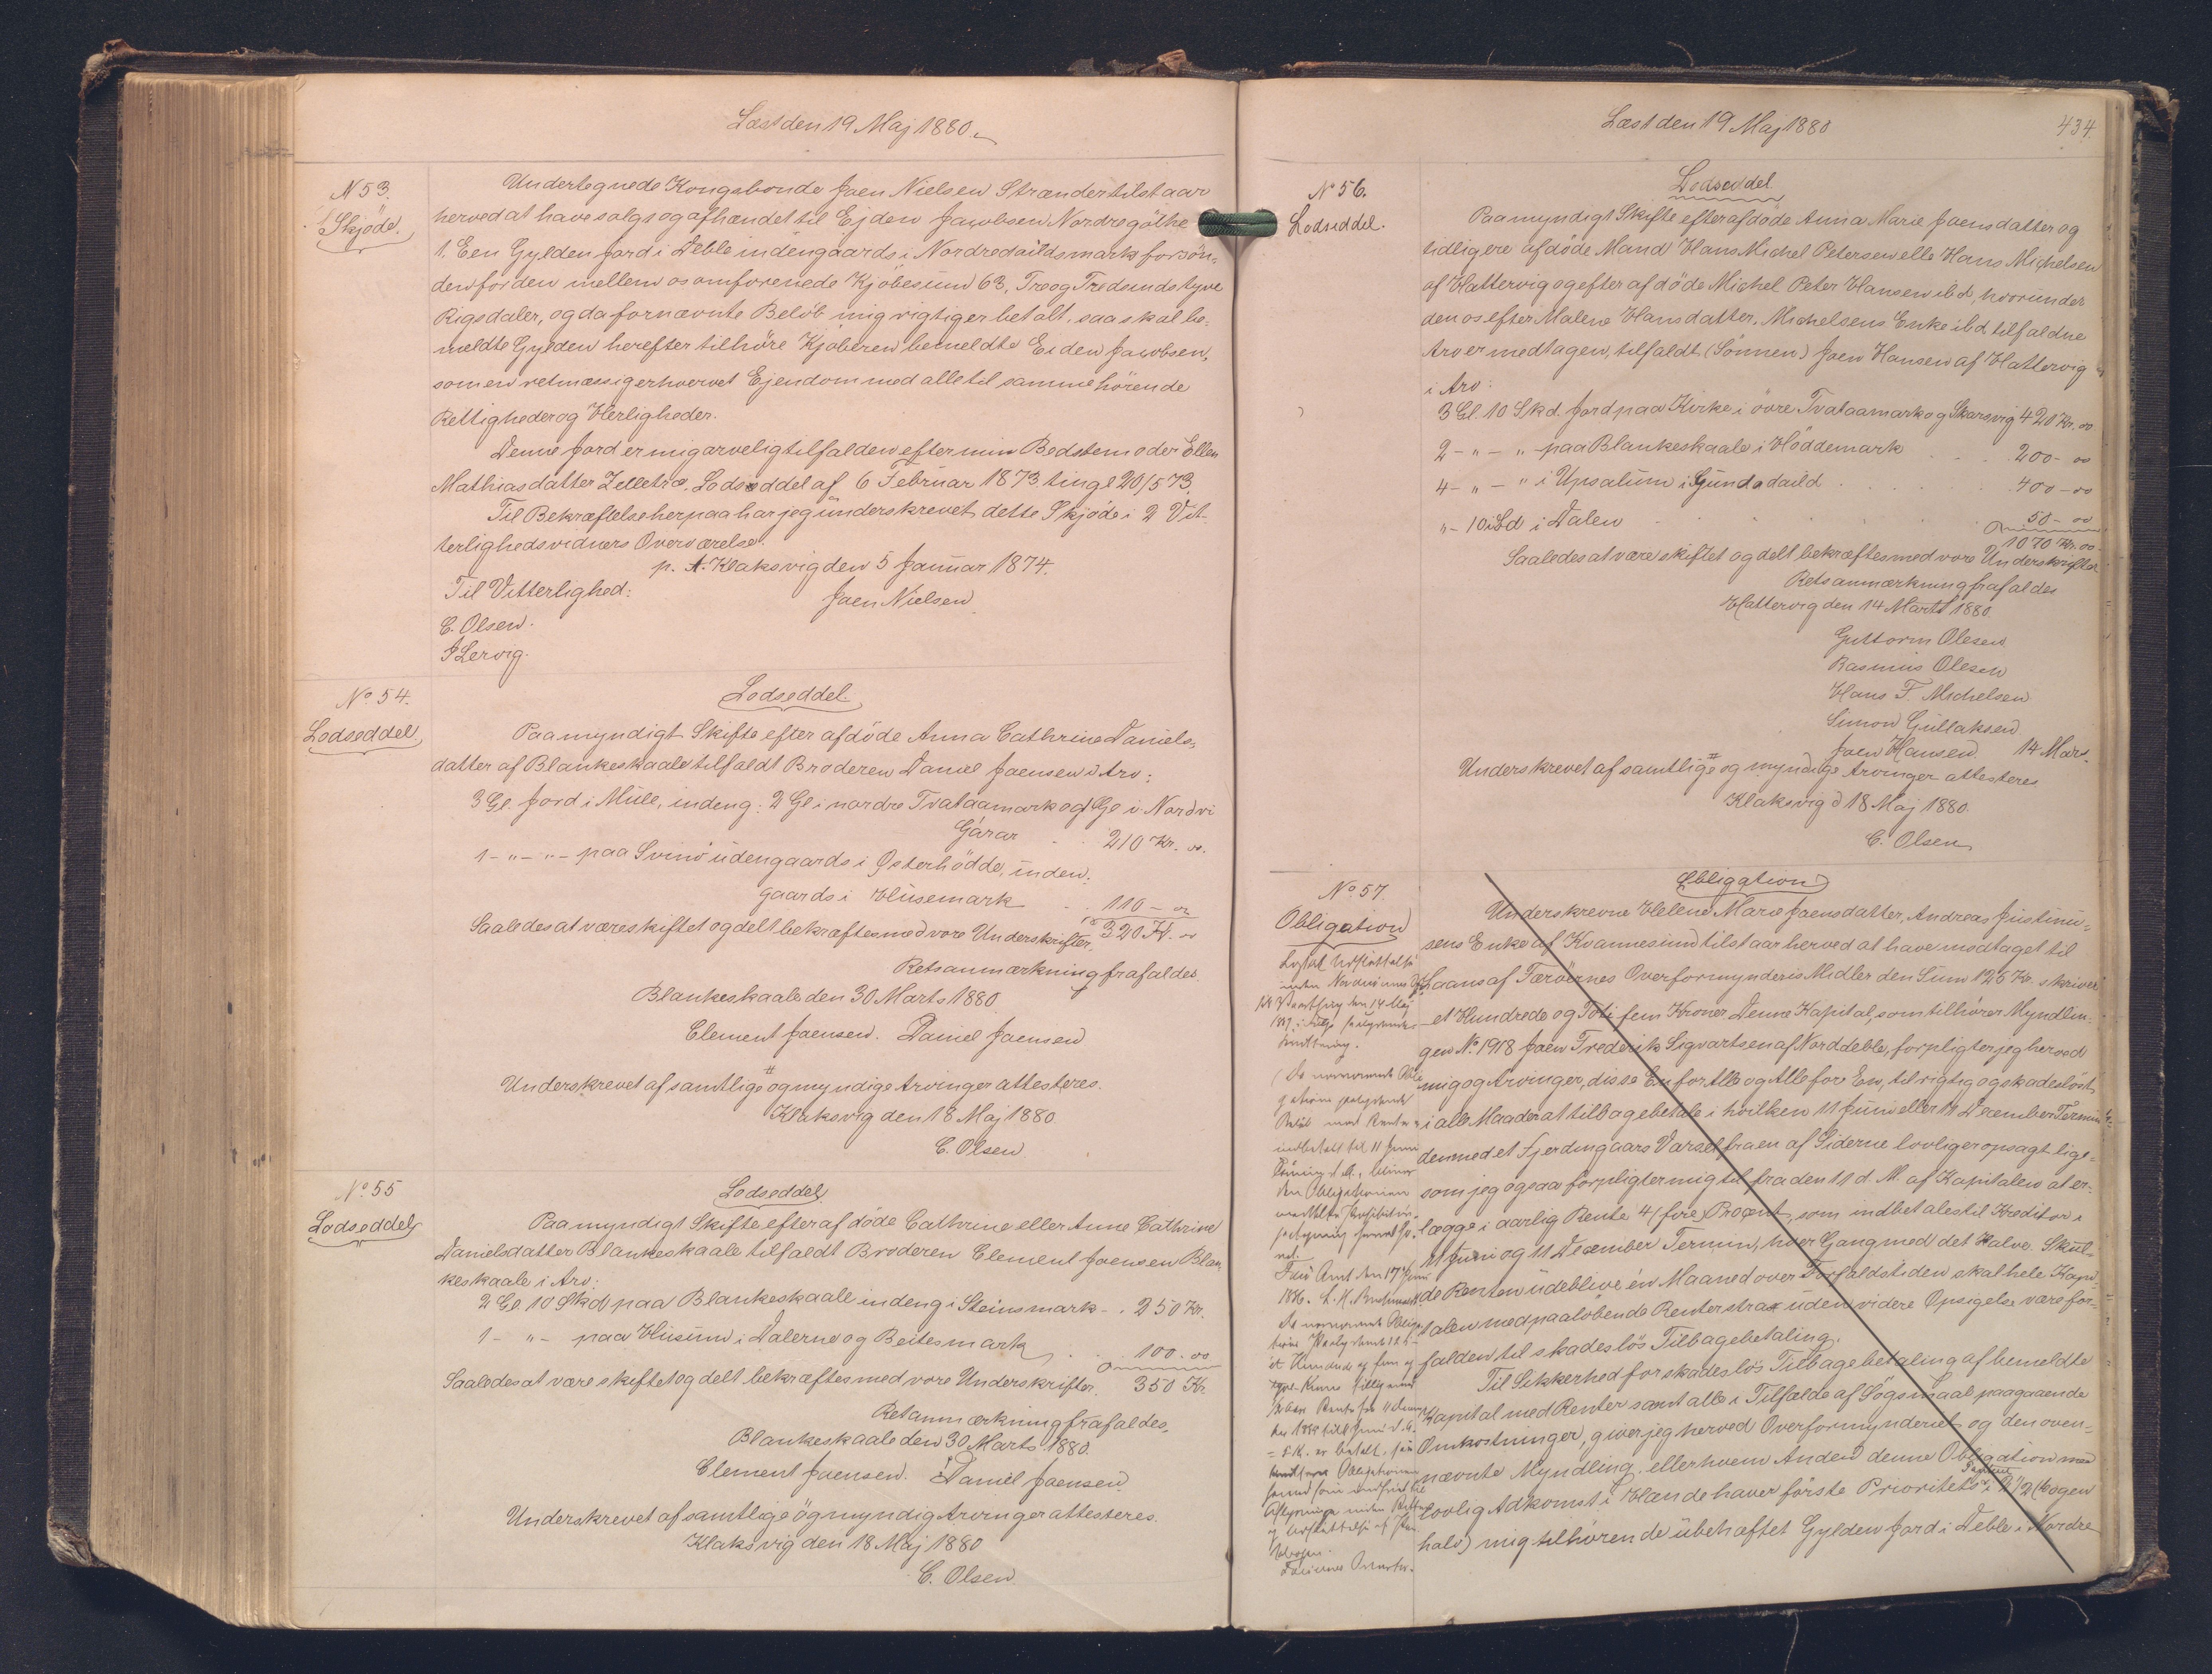 Læst den 19 Maj 1880.
N 53.
Skjöde.
Undertegnede Kongsbonde Joen Nielsen Strænder tilstaar
herved at have solgt og afhændet til Ejden Jacobsen Nordregöthe
1. Een Gylden Jord i Deble indengaards i Nordredailds mark for sön-
den for den mellem os omforenede Kjöbesum 63, Tre og Tredsindstyve
Rigsdaler, og da fornævnte Belöb mig rigtiger betalt, saa skal be-
meldte Gylden herefter tilhöre Kjöberen bemeldte Eiden Jacobsen,
som en retmæssig erhvervet Ejendom med alle til samme hörende
Rettigheder og Herligheder.
Denne Jord er mig arvelig tilfalden efter min Bedstemoder Ellen
Mathiasdatter Zelletræ. Lodseddel af 6 Februar 1873. tingl 20/5 73.
Til Bekræftelse herpaa har jeg underskrevet dette Skjöde i 2 Vit-
terlighedsvidners Overværelse.
p. t. Klaksvig den 5 Januar 1874.
Til Vitterlighed: Joen Nielsen
C. Olsen.
J Lervig.
No 54.
Lodseddel
Lodseddel.
Paa myndigt Skifte efter afdöde Anna Cathrine Daniels-
datter af Blankeskaale tilfaldt Broderen Daniel Joensen i Arv:
3 Gl. Jord i Mule, indeng. 2 Gl i nordre Tvataamark og 1 Gl i Nordvi
Gárar . . 210 Kr. ..
1 - " - " - paa Svinö udengaards i Østerhödde, inden-
gaards i Husemark . . 110 - "
Saaledes at være skiftet og delt bekræftes med vore Underskrifter. 320 Kr. ..
Retsanmærkning frafaldes.
Blankeskaale den 30 Marts 1880.
Clement Joensen. Daniel Joensen
Underskrevet af samtlige og myndige Arvinger attesteres.
Klaksvig den 18 Maj 1880.
C. Olsen.
No 55
Lodseddel
Lodseddel.
Paa myndigt Skifte efter afdöde Cathrine eller Anne Cathrine
Danielsdatter Blankeskaale tilfaldt Broderen Clement Joensen Blan-
keskaale i Arv:
2 Gl. 10 Skd paa Blankeskaale indeng i Steinsmark - . 250 Kr.
1 - " - paa Husum i Dalerne og Beitesmark . . 100. oo
Saaledes at være skiftet og delt bekræftes med vore Underskrifter. 350 Kr.
Retanmærkning frafaldes.
Blankeskaale den 30 Marts 1880.
Clement Joensen. Daniel Joensen
Underskrevet af samtlige og myndig Arvinger attesteres.
Klaksvig den 18 Maj 1880
C. Olsen
Læst den 19 Maj 1880
434.
No 56.
Lodseddel.
Lodseddel.
Paa myndigt Skifte efter afdöde Anna Marie Joensdatter og
tidligere afdöde Mand Hans Michel Petersen elle Hans Michelsen
af Hattervig og efter afdöde Michel Peter Hansen ibd, hvorunder
den os efter Malene Hansdatter, Michelsens Enke ibd. tilfaldne
Arv er medtagen, tilfaldt (Sönnen) Joen Hansen af Hattervig
i Arv:
3 Gl. 10 Skd. Jord paa Kirke i övre Tvataamark og Skarsvig 420 Kr. oo
2 - " - " - paa Blankeskaale i Höddemark . . . 200 - oo
4 - " - " i Upsalum i Gunda daild . . . 400 - oo
" - 10 Skd i Dalen . . . 50 - oo
1070 Kr. oo
Saaledes at være skiftet og delt bekræftes med vore Underskrifter
Retsanmærkning frafaldes
Hattervig den 14 Marts 1880.
Guttorm Olesen
Rasmus Olesen
Hans F Michelsen
Simon Gullaksen
Joen Hansen 14 Mars.
Underskrevet af samtlige og myndige Arvinger attesteres
Klaksvig d 18 Maj 1880.
C. Olsen
No 57.
Obligation
Obligation
Underskrevne Helene Marie Joensdatter, Andreas Justinu-
sens Enke af Kvannesund tilstaar herved at have modtaget til
Laans af Færöernes Overformynderis Midler den Sum 125 Kr. skriver
et Hundrede og Toti fem Kroner Denne Kapital, som tilhörer Myndlin-
gen No. 1918 Joen Frederik Sigvartsen af Norddeble, forpligter jeg herved
mig og Arvinger, disse En for Alle og Alle for En, til rigtig og skadeslöst
i alle Maader at tilbagebetale i hvilken 11 Juni eller 11 December Termin
den med et Fjerdingaars Varsel fra en af Siderne lovliger opsagt lige-
som jeg ogsaa forpligter mig til fra den 11 d. M. af Kapitalen at er-
lægge i aarlig Rente 4 (fire) Procent, som indbetales til Kreditor i
11 Juni og 11 December Termin, hver Gang med det Halve. Skul-
de Renten udeblive én Maaned over Forfaldstiden skal hele Kapi-
talen med paalöbende Renter strax uden videre Opsigelse være for-
falden til skadeslös Tilbagebetaling.
Til Sikkerhed for skadeslös Tilbagebetaling af bemeldte
Kapital med Renter samt alle i Tilfælde af Sögsmaal paagaaende
Omkostninger, giver jeg herved Overformynderiet og den oven-
nævnte Myndling, eller hvem Anden denne Obligation med
lovlig Adkomst i Hænde haver förste Prioritets Panteret i 1 1/2 (een og en
halv) mig tilhörende ubehæftet Gylden Jord i Deble i Nordre